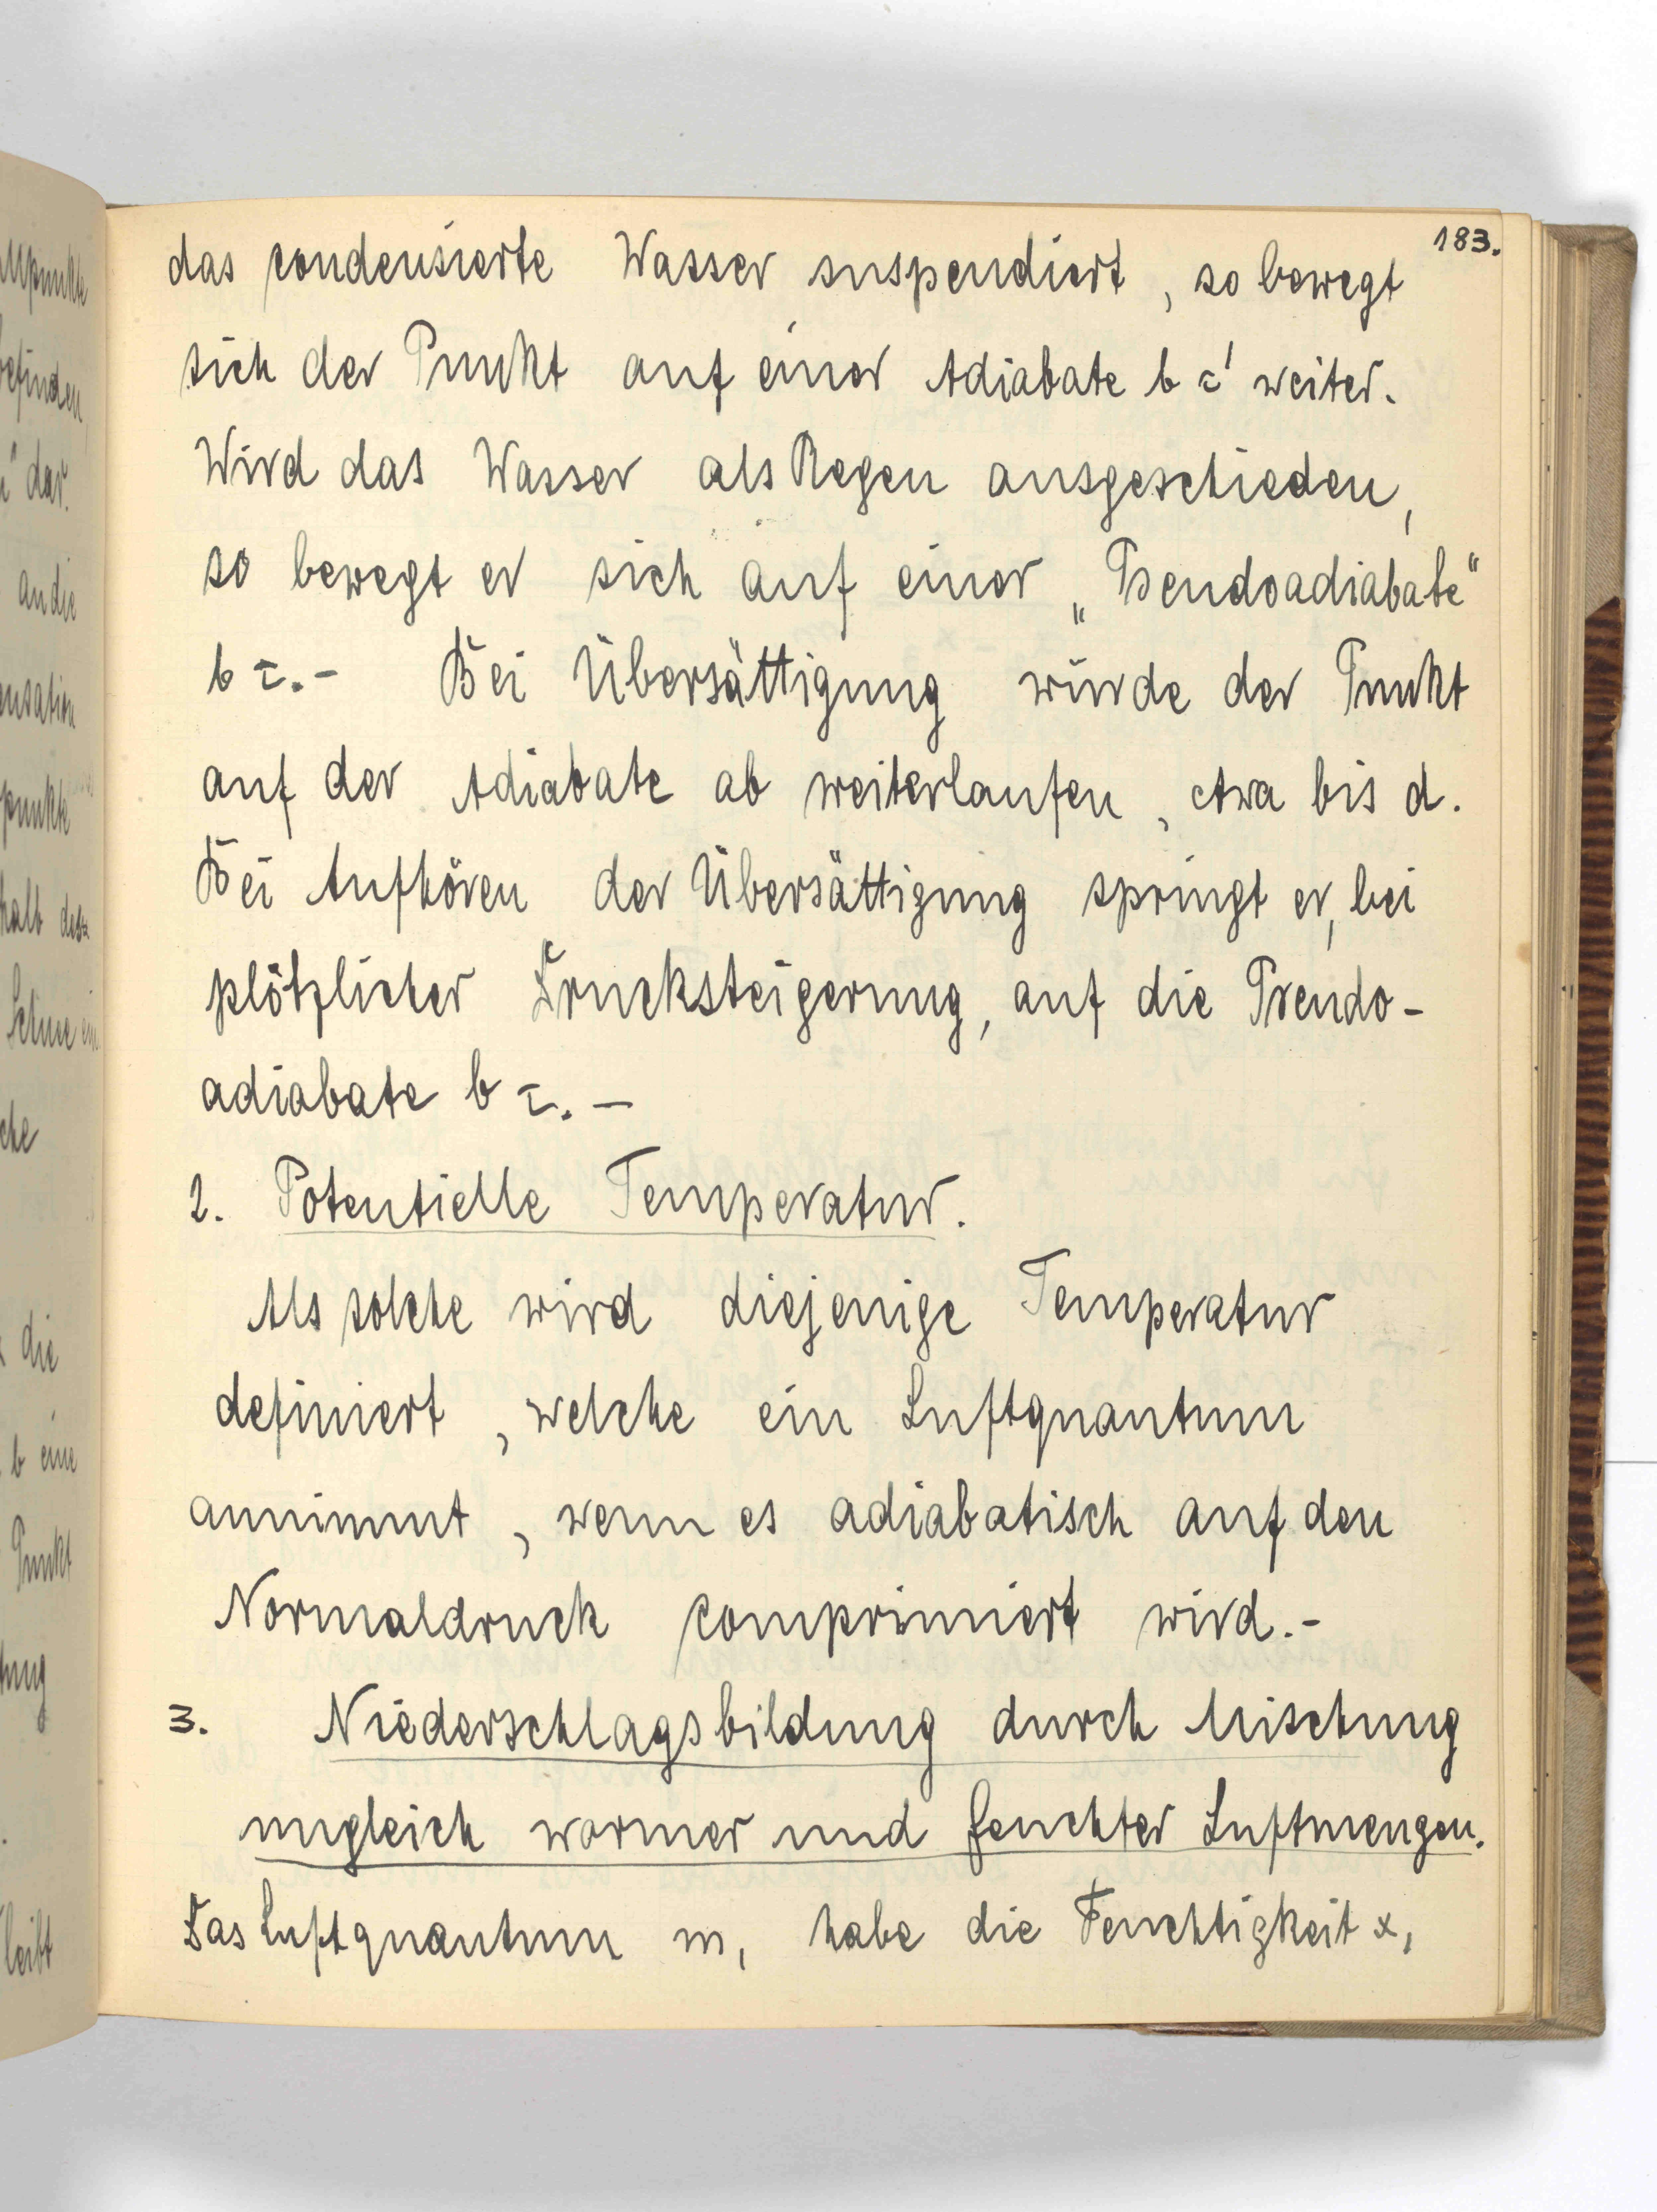 183.
das condensierte Wasser suspendiert, so bewegt
sich der Punkt auf einer Adiabate b c' weiter.
Wird das Wasser als Regen ausgeschieden,
so bewegt er sich auf einer „Pseudoadiabate“
b c.- Bei Übersättigung würde der Punkt
auf der Adiabate ab weiterlaufen, etwa bis d.
Bei Aufhören der Übersättigung springt er, bei
plötzlicher Drucksteigerung, auf die Pseudo-
adiabate b c. -
2. Potentielle Temperatur.
Als solche wird diejenige Temperatur
definiert, welche ein Luftquantum
annimmt, wenn es adiabatisch auf den
Normaldruck comprimiert wird.-
3. Niederschlagsbildung durch Mischung
ungleich warmer und feuchter Luftmengen.
Das Luftquantum m₁ habe die Feuchtigkeit x₁